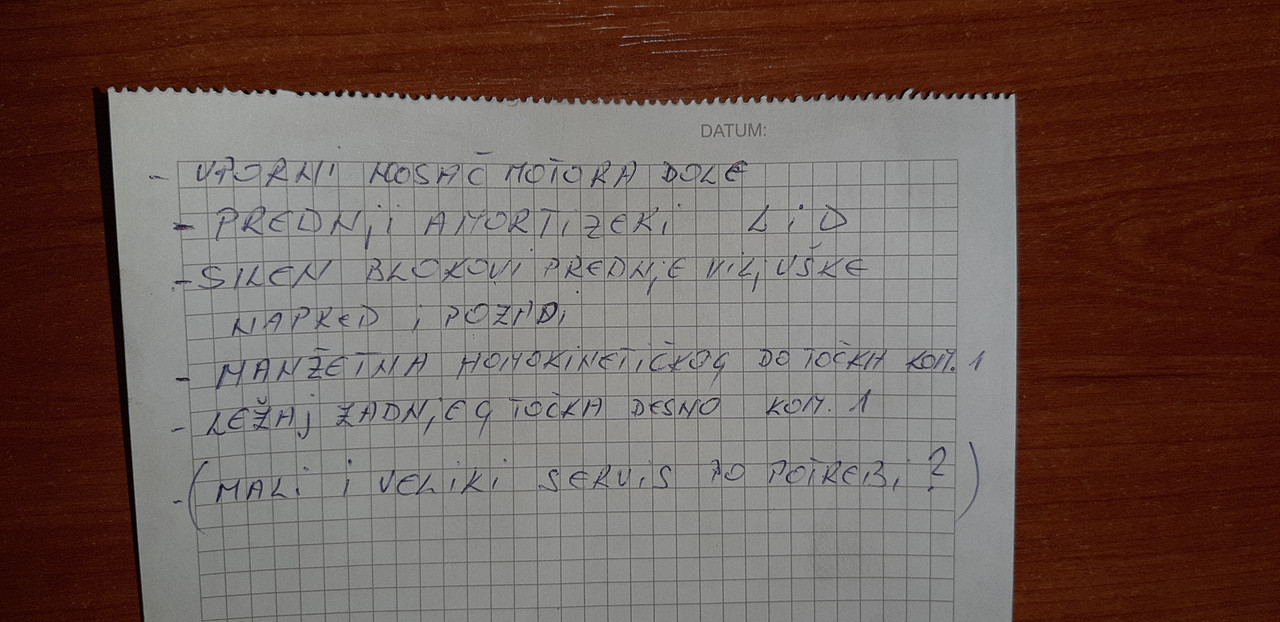 DATUM:
- UPORNI NOSAČ MOTORA DOLE
- PREDNJI AMORTIZERI L i D
- SILEN BLOKOVI PREDNJE VILJUŠKE
NAPRED i POZADI
- MANŽETNA HOMOKINETIČKOG DO TOČKA KOM. 1
- LEŽAJ ZADNJEG TOČKA DESNO KOM. 1
- (MALI i VELIKI SERVIS PO POTREBI ?)